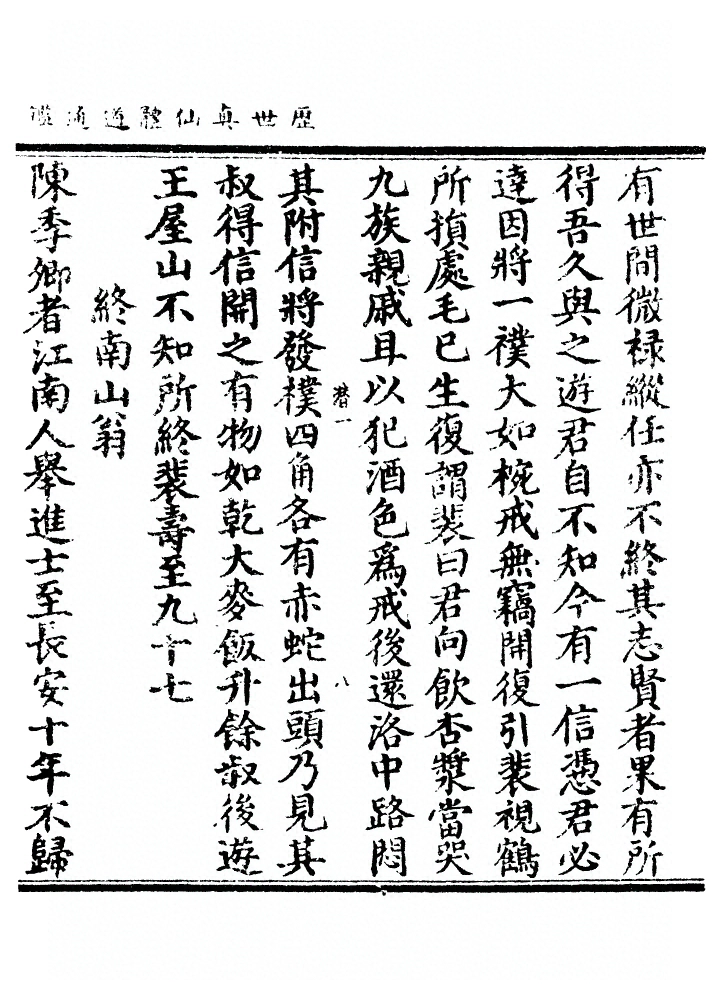 歴世真仙體道通鑑
有世間微禄縱任亦不終其志賢者果有所
得吾久與之遊君自不知今有一信憑君必
達因將一襆大如椀戒無竊開復引裴視鶴
所損處毛已生復謂裴曰君向飲杏漿當哭
九族親戚且以犯酒色爲戒後還洛中路悶
替一
八
其附信將發樸四角各有赤蛇出頭乃見其
叔得信開之有物如乾大麥飯升餘叔後遊
王屋山不知所終裴壽至九十七
終南山翁
陳季卿者江南人舉進士至長安十年不歸